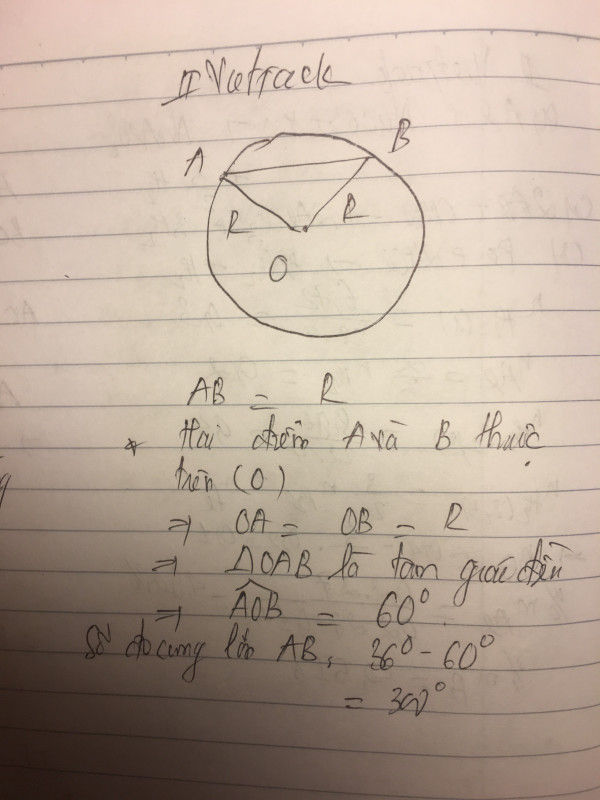 II Vuetrack
A
B
R
R
O
AB = R
* Hai điểm A và B thuộc
trên (O)
⇒ OA = OB = R
⇒ ΔOAB là tam giác đều
⇒ AOB = 60°
Số đo cung lớn AB: 360 - 60°
= 300°